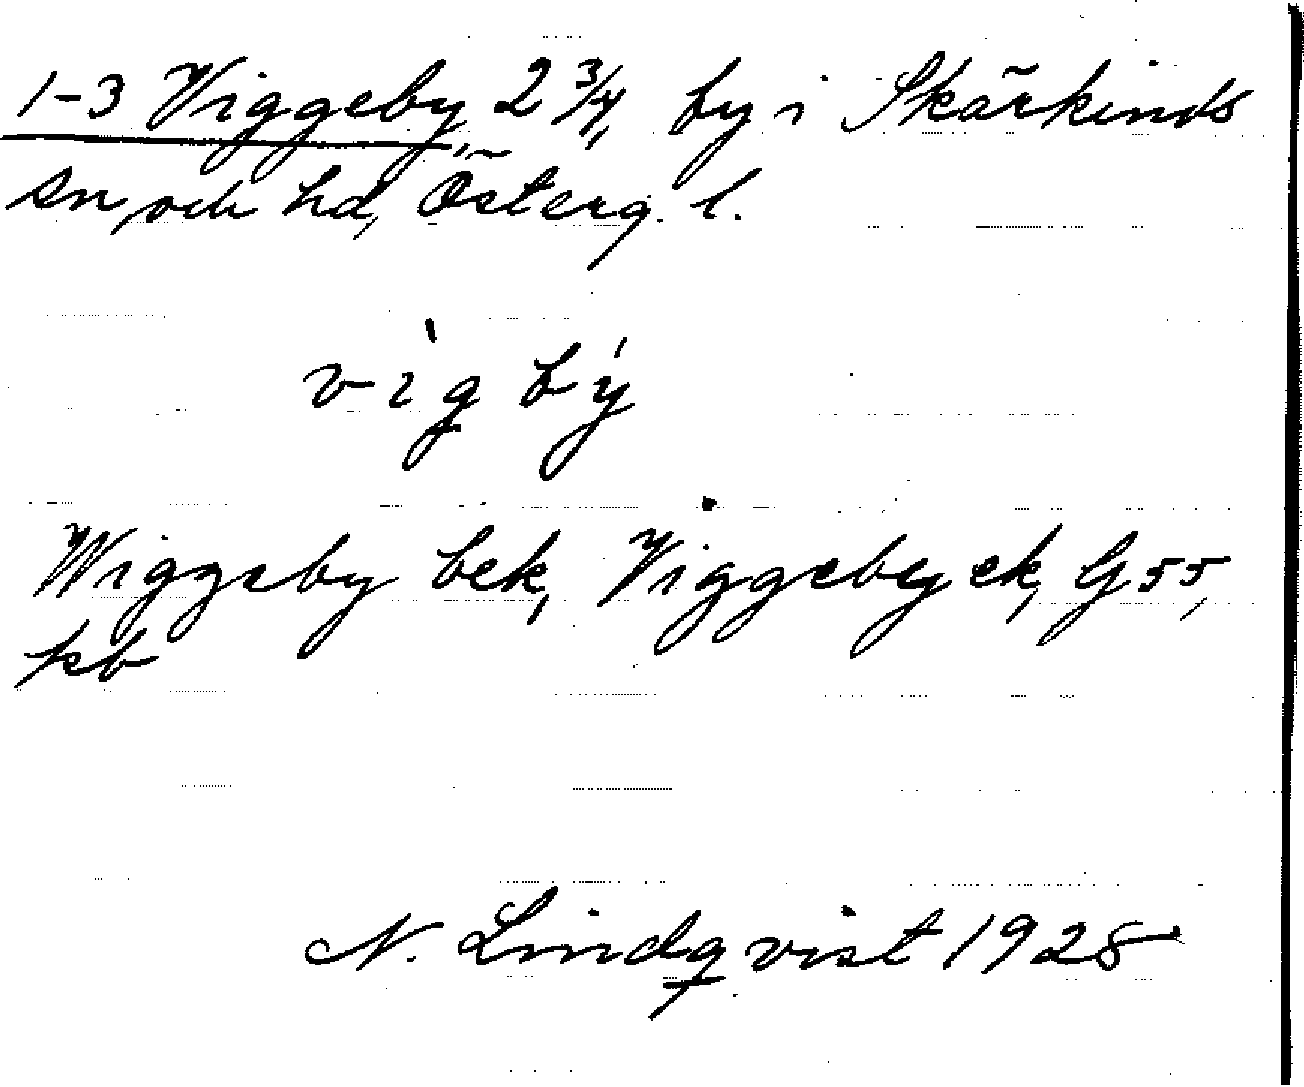 1-3 Viggeby, 2 3/4, by i Skärkinds
sn och hd, Österg. l.
vìg bý
Wiggeby bek, Viggeby ek, G 55,
kb
N. Lindqvist 1928